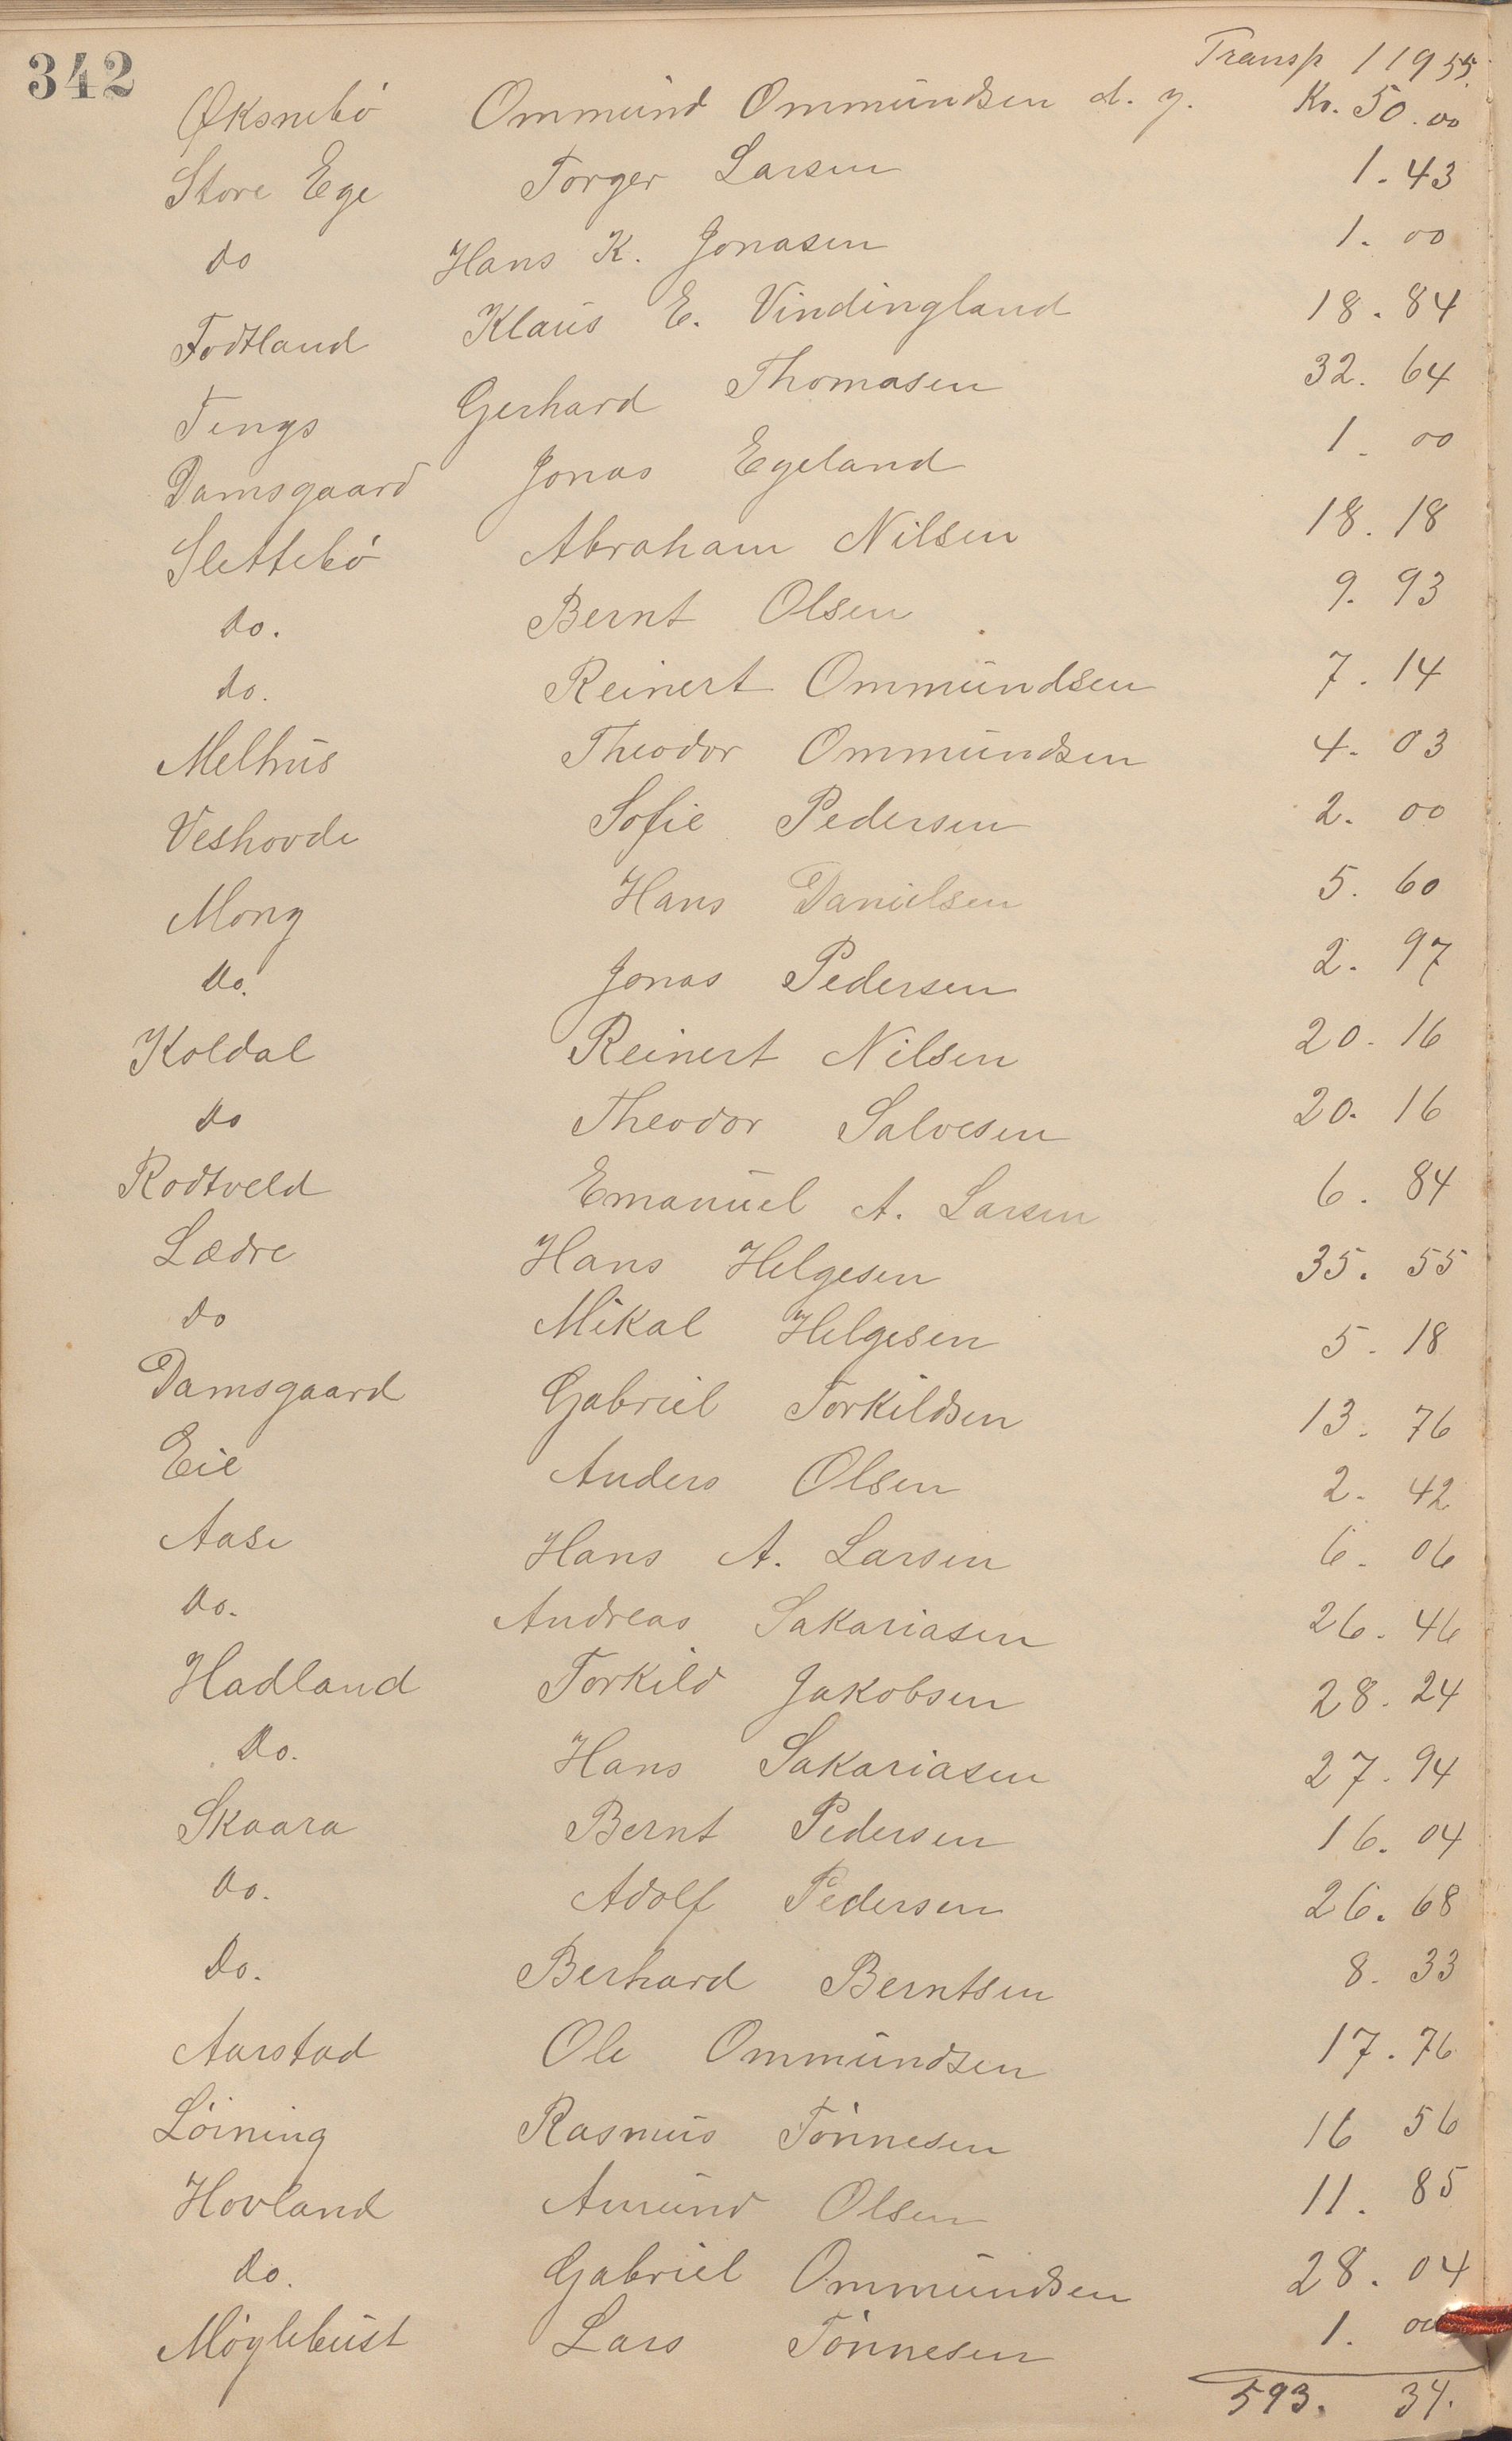 342
Transp 119 55.
Øksnebó Ommund Ommundsen d. y. Kr. 50.00
Store Ege Torger Larsen 1.43
do Hans K. Jonasen 1.00
Fodtland Klaus E. Vindingland 18.84
Tengs Gerhard Thomasen 32.64
Damsgaard Jonas Egeland 1.00
Slettebó Abraham Nilsen 18.18
do. Bernt Olsen 9.93
do. Reinert Ommundsen 7.14
Melhus Theodor Ommundsen 4.03
Veshovde Sofie Pedersen 2.00
Mong Hans Danielsen 5.60
do. Jonas Pedersen 2.97
Koldal Reinert Nilsen 20.16
do Theodor Salvesen 20.16
Rodtveld Emanuel A. Larsen 6.84
Lædre Hans Helgesen 35.55
do Mikal Helgesen 5.18
Damsgaard Gabriel Torkildsen 13.76
Eie Anders Olsen 2.42
Aase Hans A. Larsen 6.06
do. Andreas Sakariasen 26.46
Hadland Torkild Jakobsen 28.24
Do. Hans Sakariasen 27.94
Skaara Bernt Pedersen 16.04
do. Adolf Pedersen 26.68
Do. Berhard Berntsen 8.33
Aarstad Ole Ommundsen 17.76
Lóining Rasmus Tónnesen 16 56
Hovland Amund Olsen 11.85
do. Gabriel Ommundsen 28.04
Móglebust Lars Tónnesen 1. 00
593. 34.